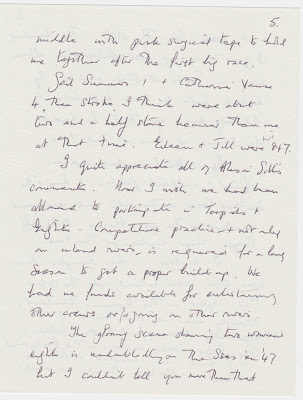 5.
middle with pink surgical tape to hold
me together after the first big race.
Gail Summers 1 + Catherine Vance
4, then stroke, I think were about
two and a half stone heavier than me
at that time. Eileen + Jill were '47.
I quite appreciate all of Alison Gill's
comments. How I wish we had been
allowed to participate in Torpids +
Eights. Competitive practice - + not only
on inland rivers - is required for a long
season to get a proper build-up. We
had no funds available for entertaining
other crews or rowing on other rivers.
The glowing scene showing two women's
eights is undoubtedly on the Seas in '47
but I couldn't tell you more than that